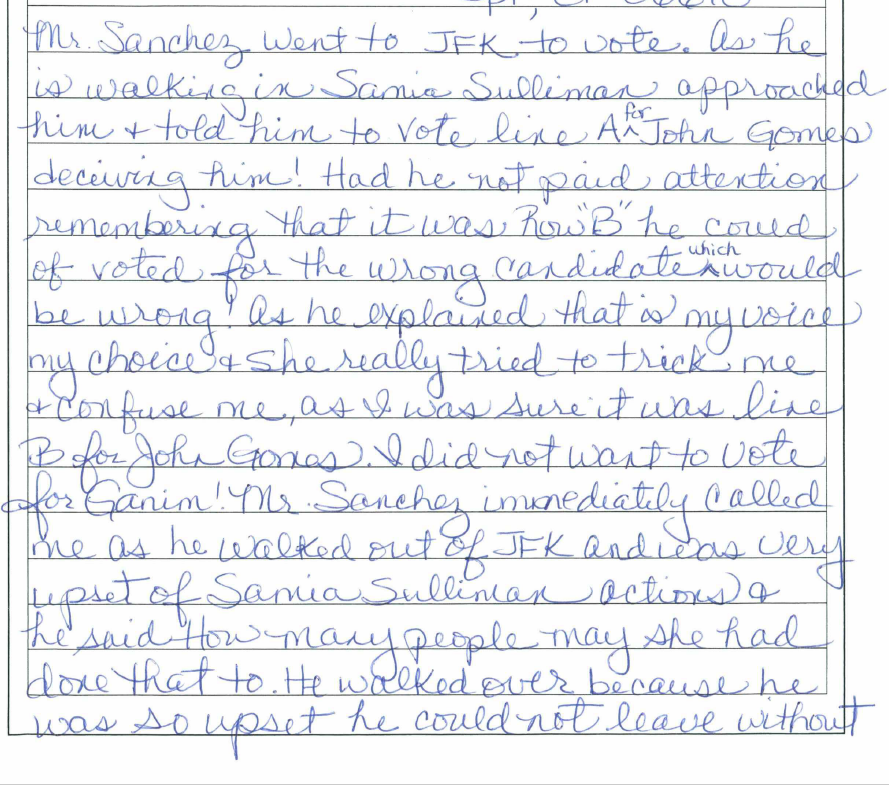 Mr. Sanchez went to JFK to vote. As he
is walking in Samia Sulliman approached
him + told him to vote line A for John Gomes
deceiving him! Had he not paid attention
remembering that it was Row "B" he could
of voted for the wrong candidate which would
be wrong! As he explained that is my voice
my choice & she really tried to trick me
& confuse me, as I was sure it was line
B for John Gomes. I did not want to vote
for Ganim! Mr. Sanchez immediately called
me as he walked out of JFK and was very
upset of Samia Sulliman actions &
he said How many people may she had
done that to. He walked over because he
was so upset he could not leave without